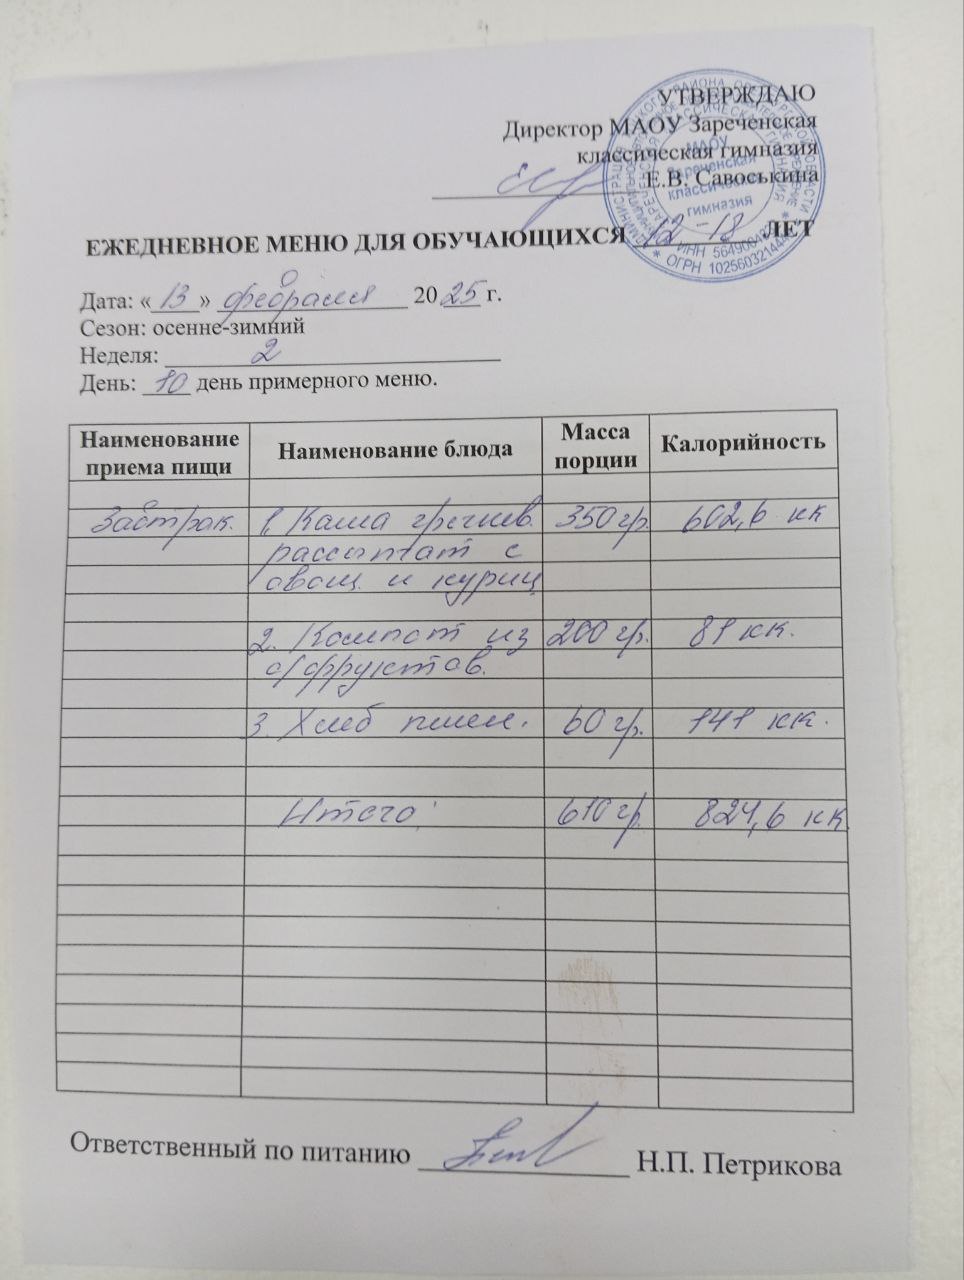 УТВЕРЖДАЮ
Директор МАОУ Зареченская
классическая гимназия
Е.В. Савоськина
МАОУ
Зареченская
классическая
гимназия
ИНН 5649004
ОГРН 1025603214444
ЕЖЕДНЕВНОЕ МЕНЮ ДЛЯ ОБУЧАЮЩИХСЯ 12-18 ЛЕТ
Дата: «13» февраля 2025 г.
Сезон: осенне-зимний
Неделя: 2
День: 10 день примерного меню.
Наименование приема пищи Наименование блюда Масса порции Калорийность
Завтрак. 1. Каша гречнев. 350 гр. 602,6 кк
рассыпчат с
овощ. и куриц
2. Компот из 200 гр. 81 кк.
с/фруктов.
3. Хлеб пшен. 60 гр. 141 кк.
Итого: 610 гр. 824,6 кк
Ответственный по питанию Н.П. Петрикова